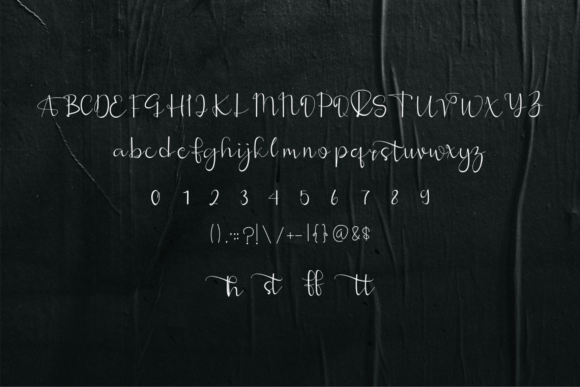 ABCDEFGHIJKLMNOPQRSTUVWXYZ
abcdefghijklmnopqrstuvwxyz
0 1 2 3 4 5 6 7 8 9
().,:;?!\/+-|{}@&$
th st ff tt